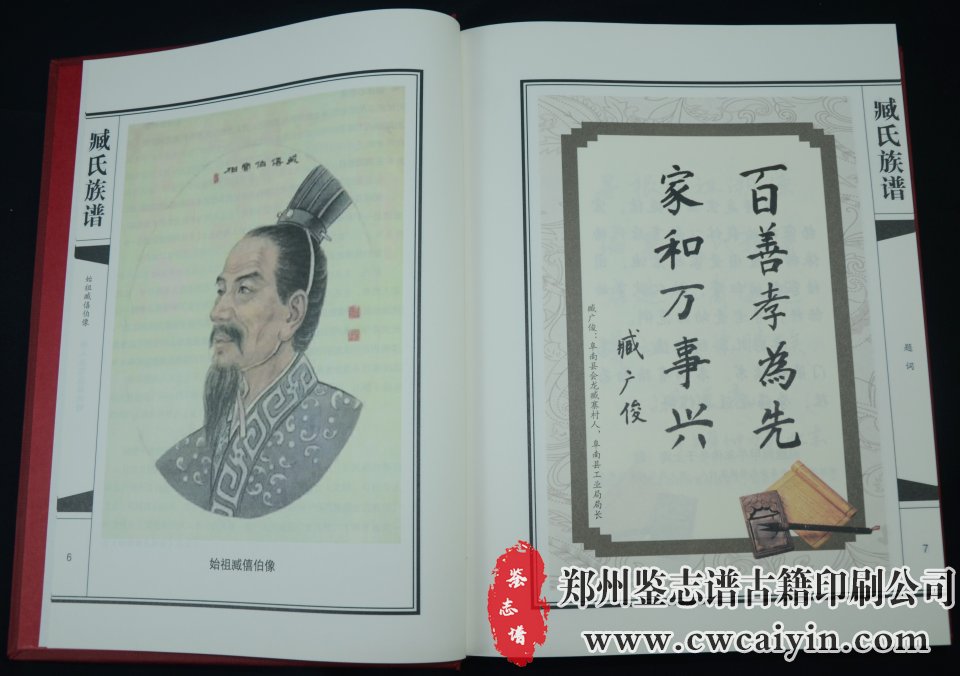 臧氏族谱
始祖臧僖伯像
臧僖伯骨相
始祖臧僖伯像
6
臧氏族谱
题词
百善孝為先
家和万事兴
臧广俊
臧广俊：阜南县会龙臧寨村人、阜南县工业局局长
7
鉴志谱
郑州鉴志谱古籍印刷公司
www.cwcaiyin.com